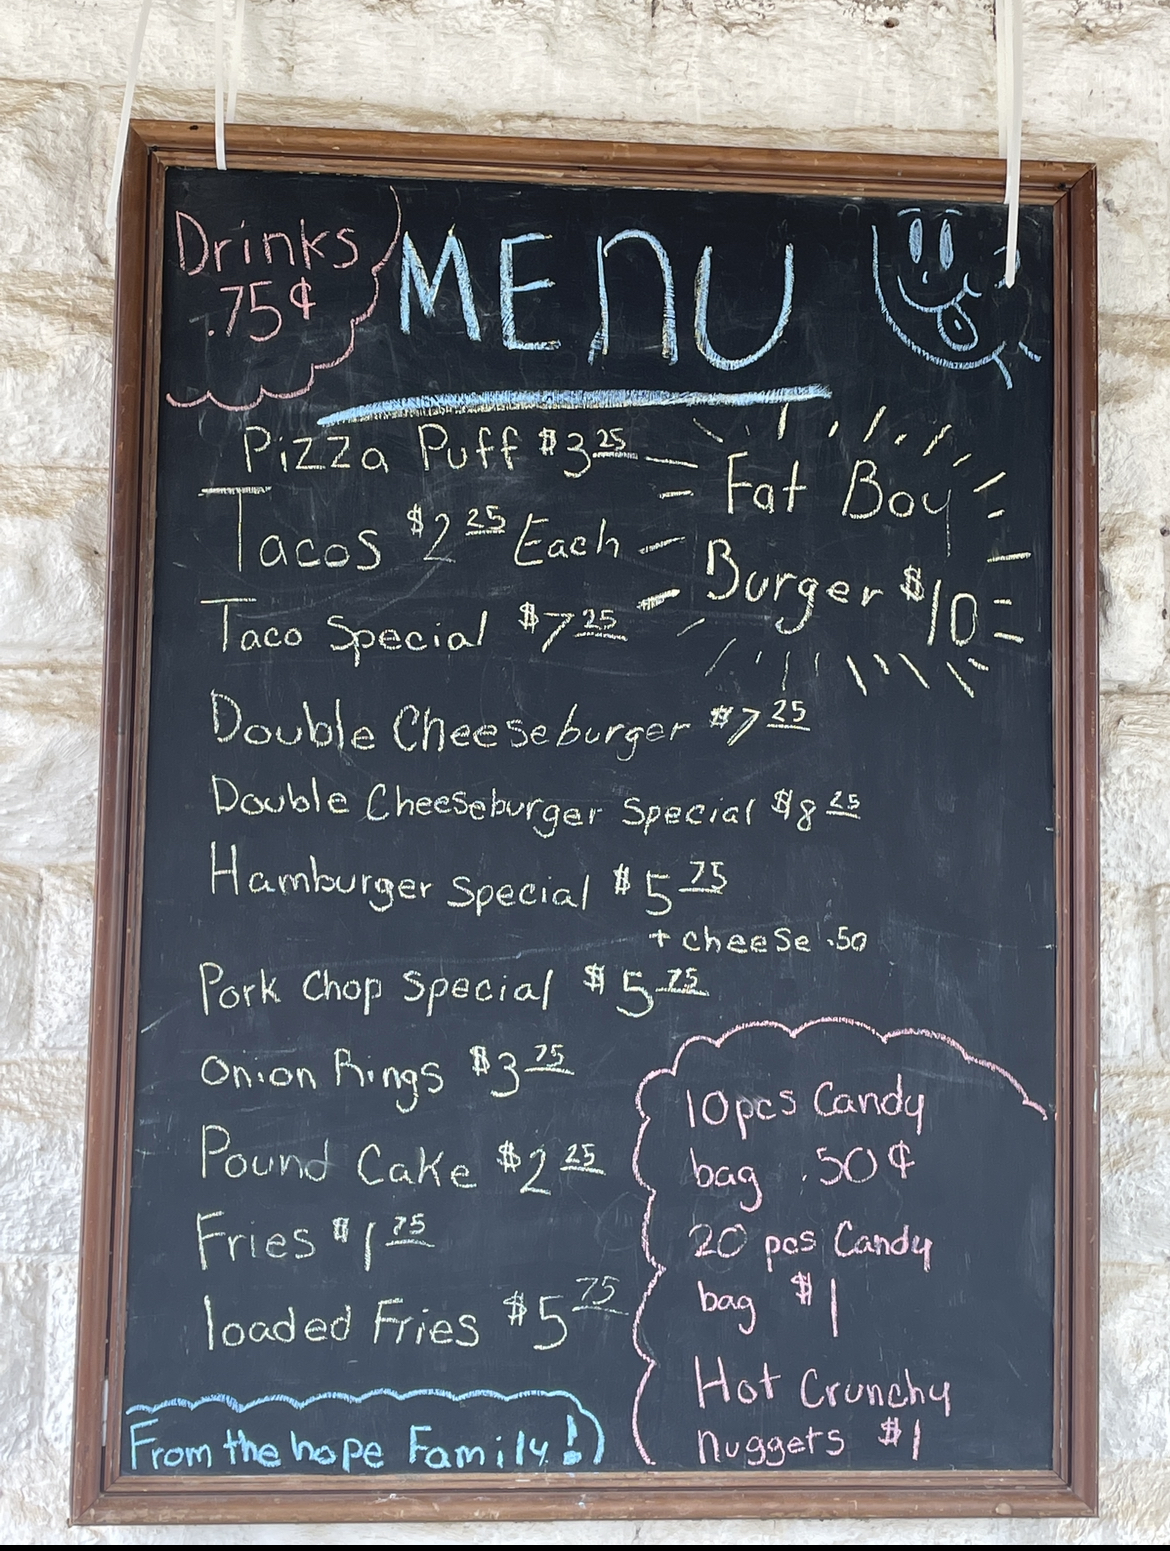 Drinks
.75¢
MENU
Pizza Puff $3 25
Tacos $2 25 Each
Taco Special $7 25
Fat Boy
Burger $10
Double Cheeseburger $7 25
Double Cheeseburger Special $8 25
Hamburger Special $5 75
+ cheese .50
Pork Chop Special $5 75
Onion Rings $3 75
Pound Cake $2 25
Fries $1 75
loaded Fries $5 75
10pcs Candy
bag .50¢
20 pcs Candy
bag $1
Hot Crunchy
nuggets $1
From the hope Family!